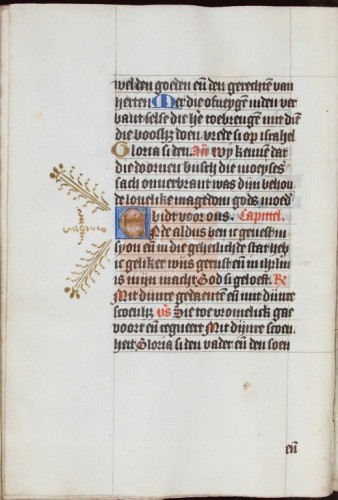 wel den goeden en̄ den gerechten van
herten Mer die ofneygen inden ver
bant selse die he᷑ toebrengen mit dien
die boosh᷑ doen vrede si op israhel
Gloria si den. An̄ Wy kennē dat
die doornen busch die moyses
sach onverbrant was dijn behou
delonelike magedom gods moed᷑
bidt voor ons. Capittel.
Ende aldus ben ic gevest in
syon en̄ in die geheilichde stat heb
ic geliker wijs gerust en̄ in ih᷑rl᷑m
is mijn macht God si gelooft R̄
Mit dijnre gedaente en̄ mit dijnre
scoenh᷑ v̄s Sie toe vromelick gae
voort en̄ regneer Mit dijnre scoen
heit Gloria si den vader en̄ den soen
en̄